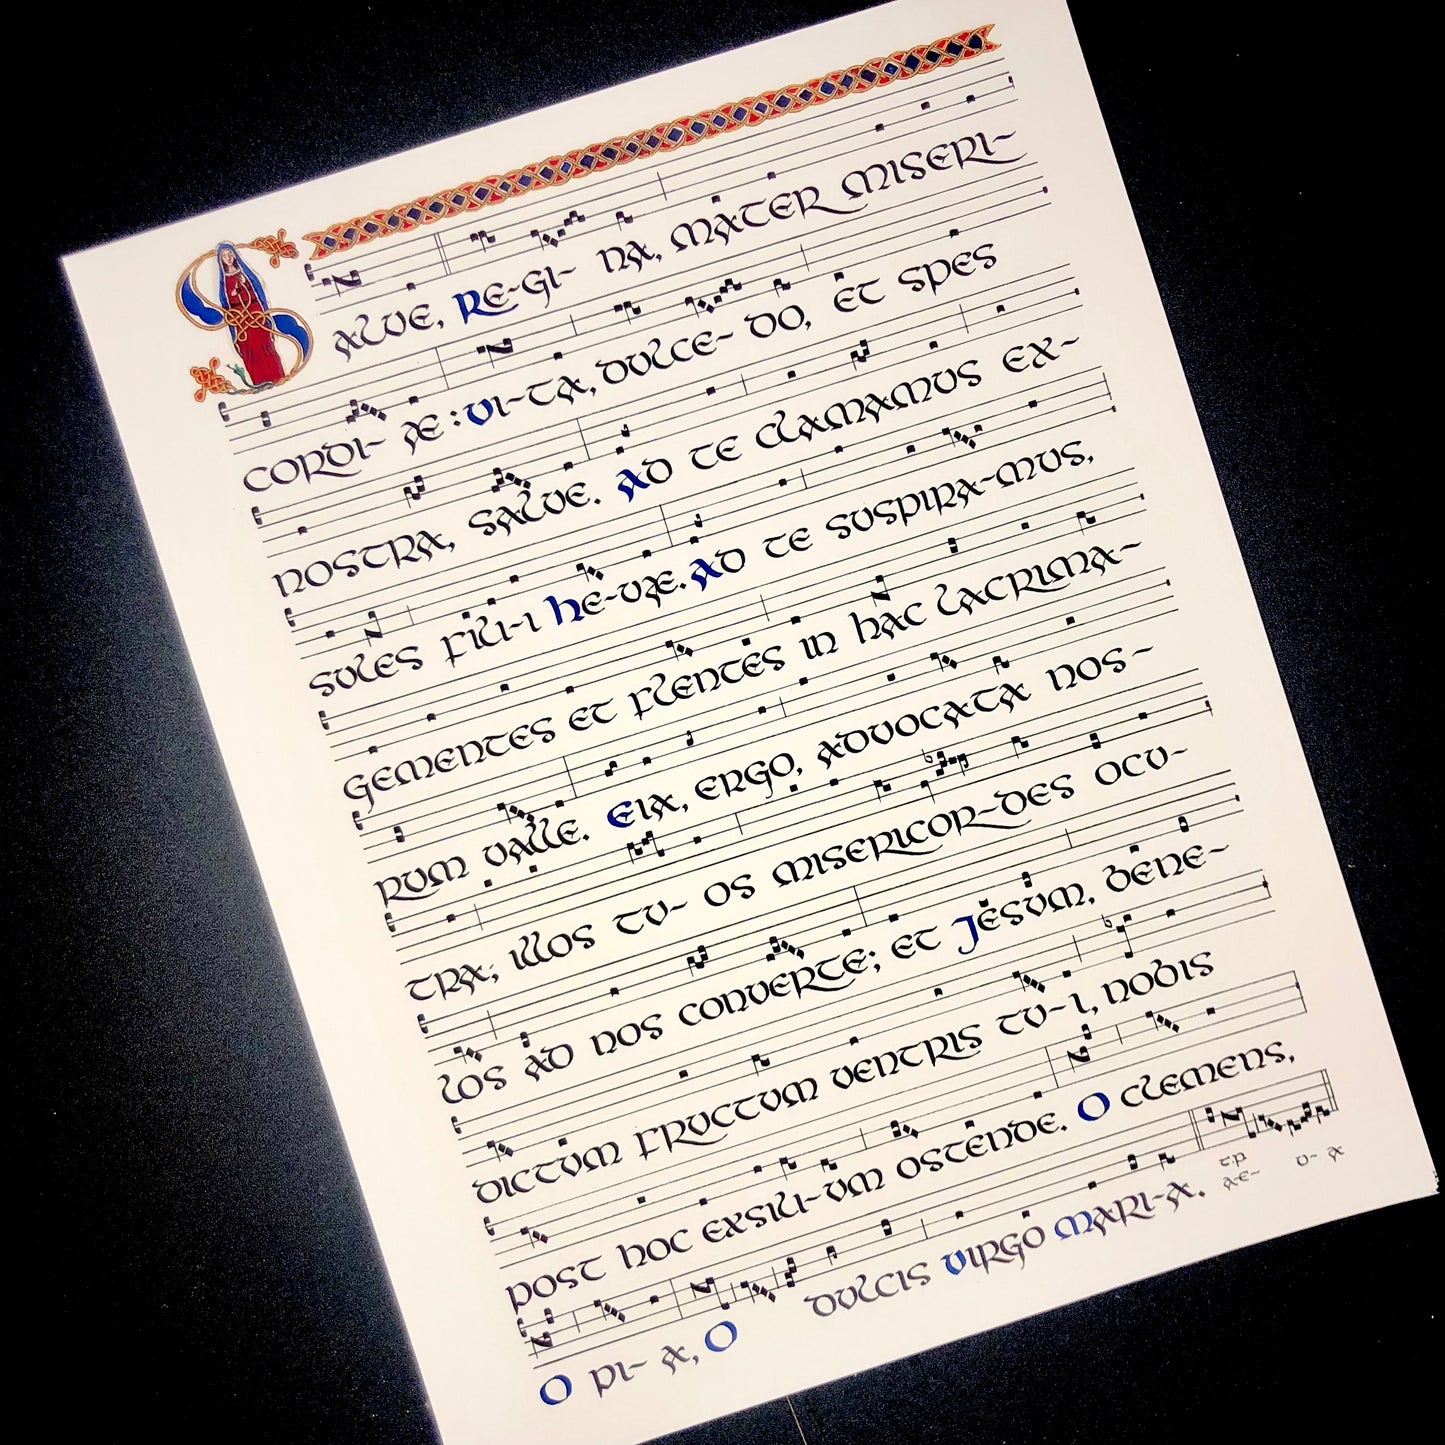 SALVE, RE-GI- NA, MATER MISERI-
CORDI- Æ : VI-TA, DULCE- DO, ET SPES
NOSTRA, SALVE. AD TE CLAMAMUS EX-
SULES FILI-I HE-VÆ. AD TE SUSPIRA-MUS,
GEMENTES ET FLENTES IN HAC LACRIMA-
RUM VALLE. EIA, ERGO, ADVOCATA NOS-
TRA; ILLOS TU- OS MISERICOR-DES OCU-
LOS AD NOS CONVERTE; ET JESUM, BENE-
DICTUM FRUCTUM VENTRIS TU-I, NOBIS
POST HOC EXSILI-UM OSTENDE. O CLEMENS,
O PI- A, O DULCIS VIRGO MARI-A. T.P. AE- U- A